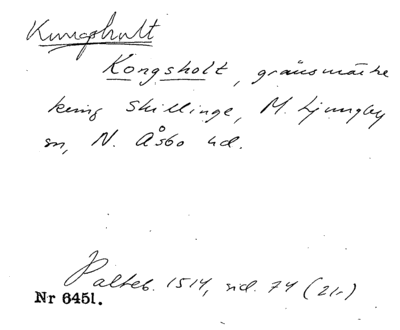 Kungshult
Kongsholt, gränsmärke
kring Skillinge, M. Ljungby
sn, N. Åsbo hd.
Palteb. 1514, sid. 74 (21r)
Nr 6451.